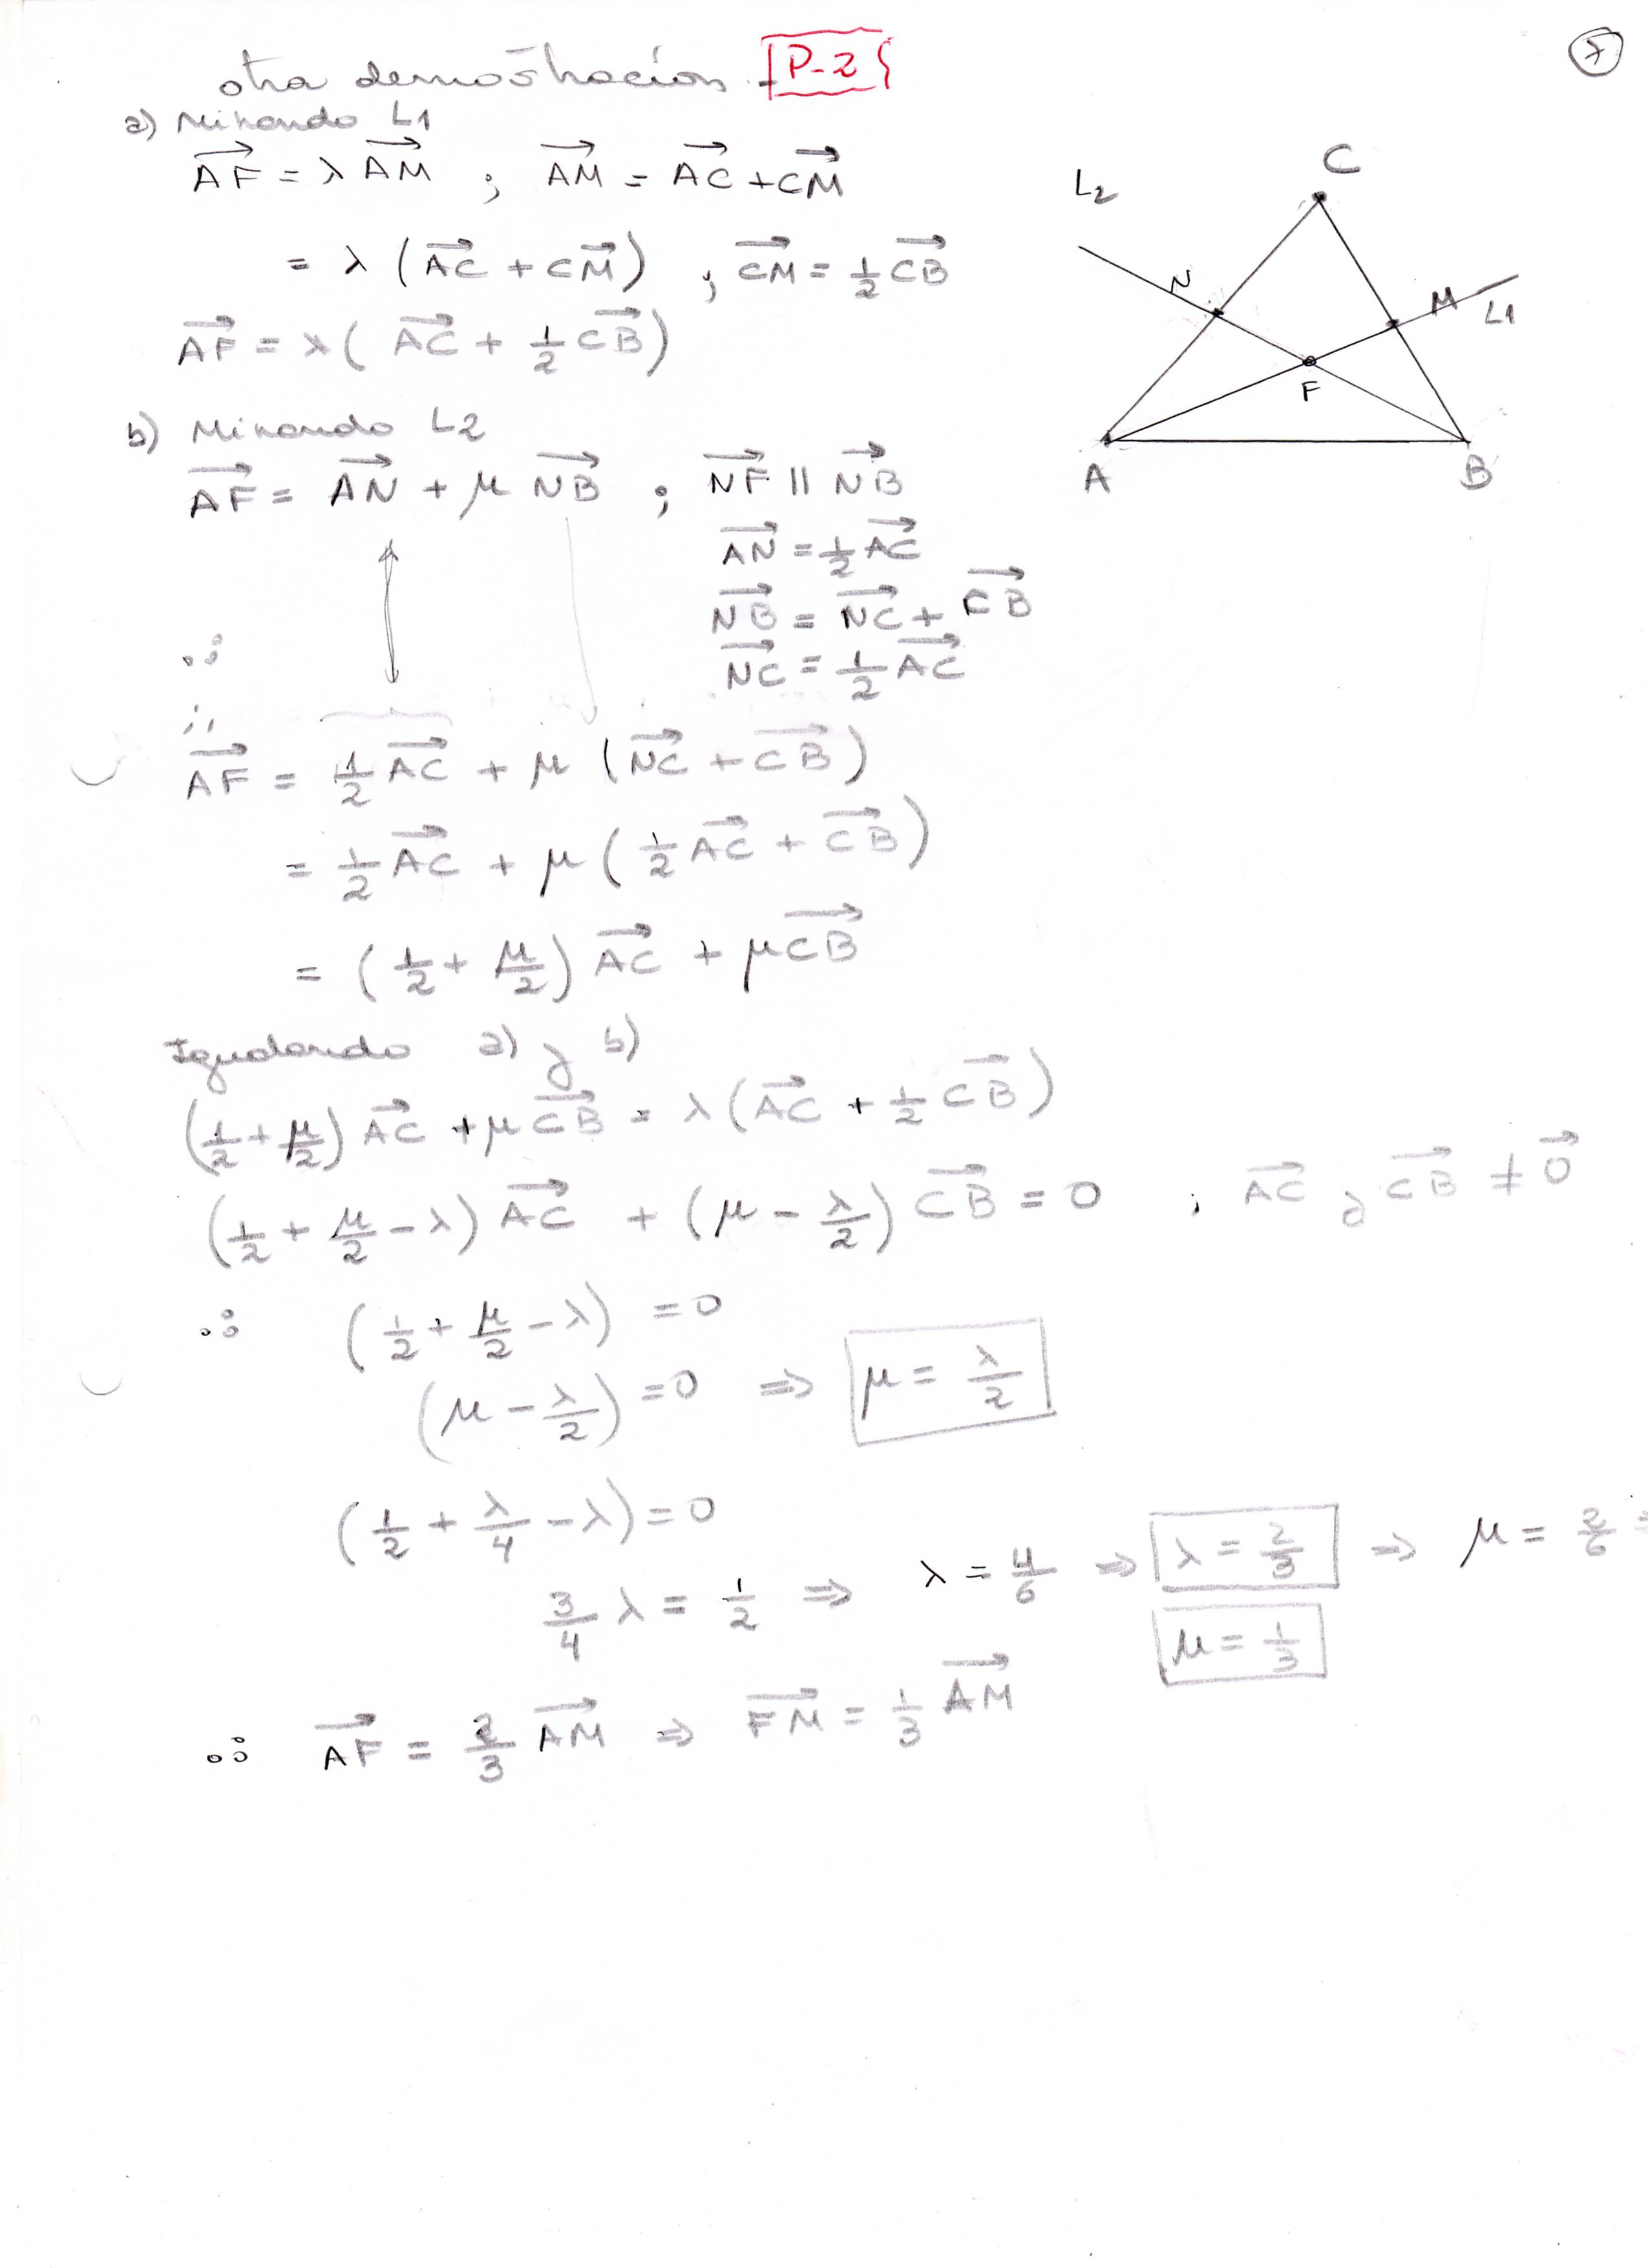 otra demostración - P-2
7
a) Mirando L1
AF = λ AM ; AM = AC + CM
= λ (AC + CM) ; CM = 1/2 CB
AF = λ( AC + 1/2 CB )
C
L2
N
M
L1
F
A
B
b) Mirando L2
AF = AN + μ NB ; NF || NB
AN = 1/2 AC
NB = NC + CB
NC = 1/2 AC
∴
AF = 1/2 AC + μ (NC + CB)
= 1/2 AC + μ ( 1/2 AC + CB )
= ( 1/2 + μ/2 ) AC + μ CB
Igualando a) y b)
( 1/2 + μ/2 ) AC + μ CB = λ ( AC + 1/2 CB )
( 1/2 + μ/2 - λ ) AC + ( μ - λ/2 ) CB = 0 ; AC y CB ≠ 0
∴ ( 1/2 + μ/2 - λ ) = 0
( μ - λ/2 ) = 0 ⇒ μ = λ/2
( 1/2 + λ/4 - λ ) = 0
3/4 λ = 1/2 ⇒ λ = 4/6 ⇒ λ = 2/3 ⇒ μ = 2/6 =
μ = 1/3
∴ AF = 2/3 AM ⇒ FM = 1/3 AM